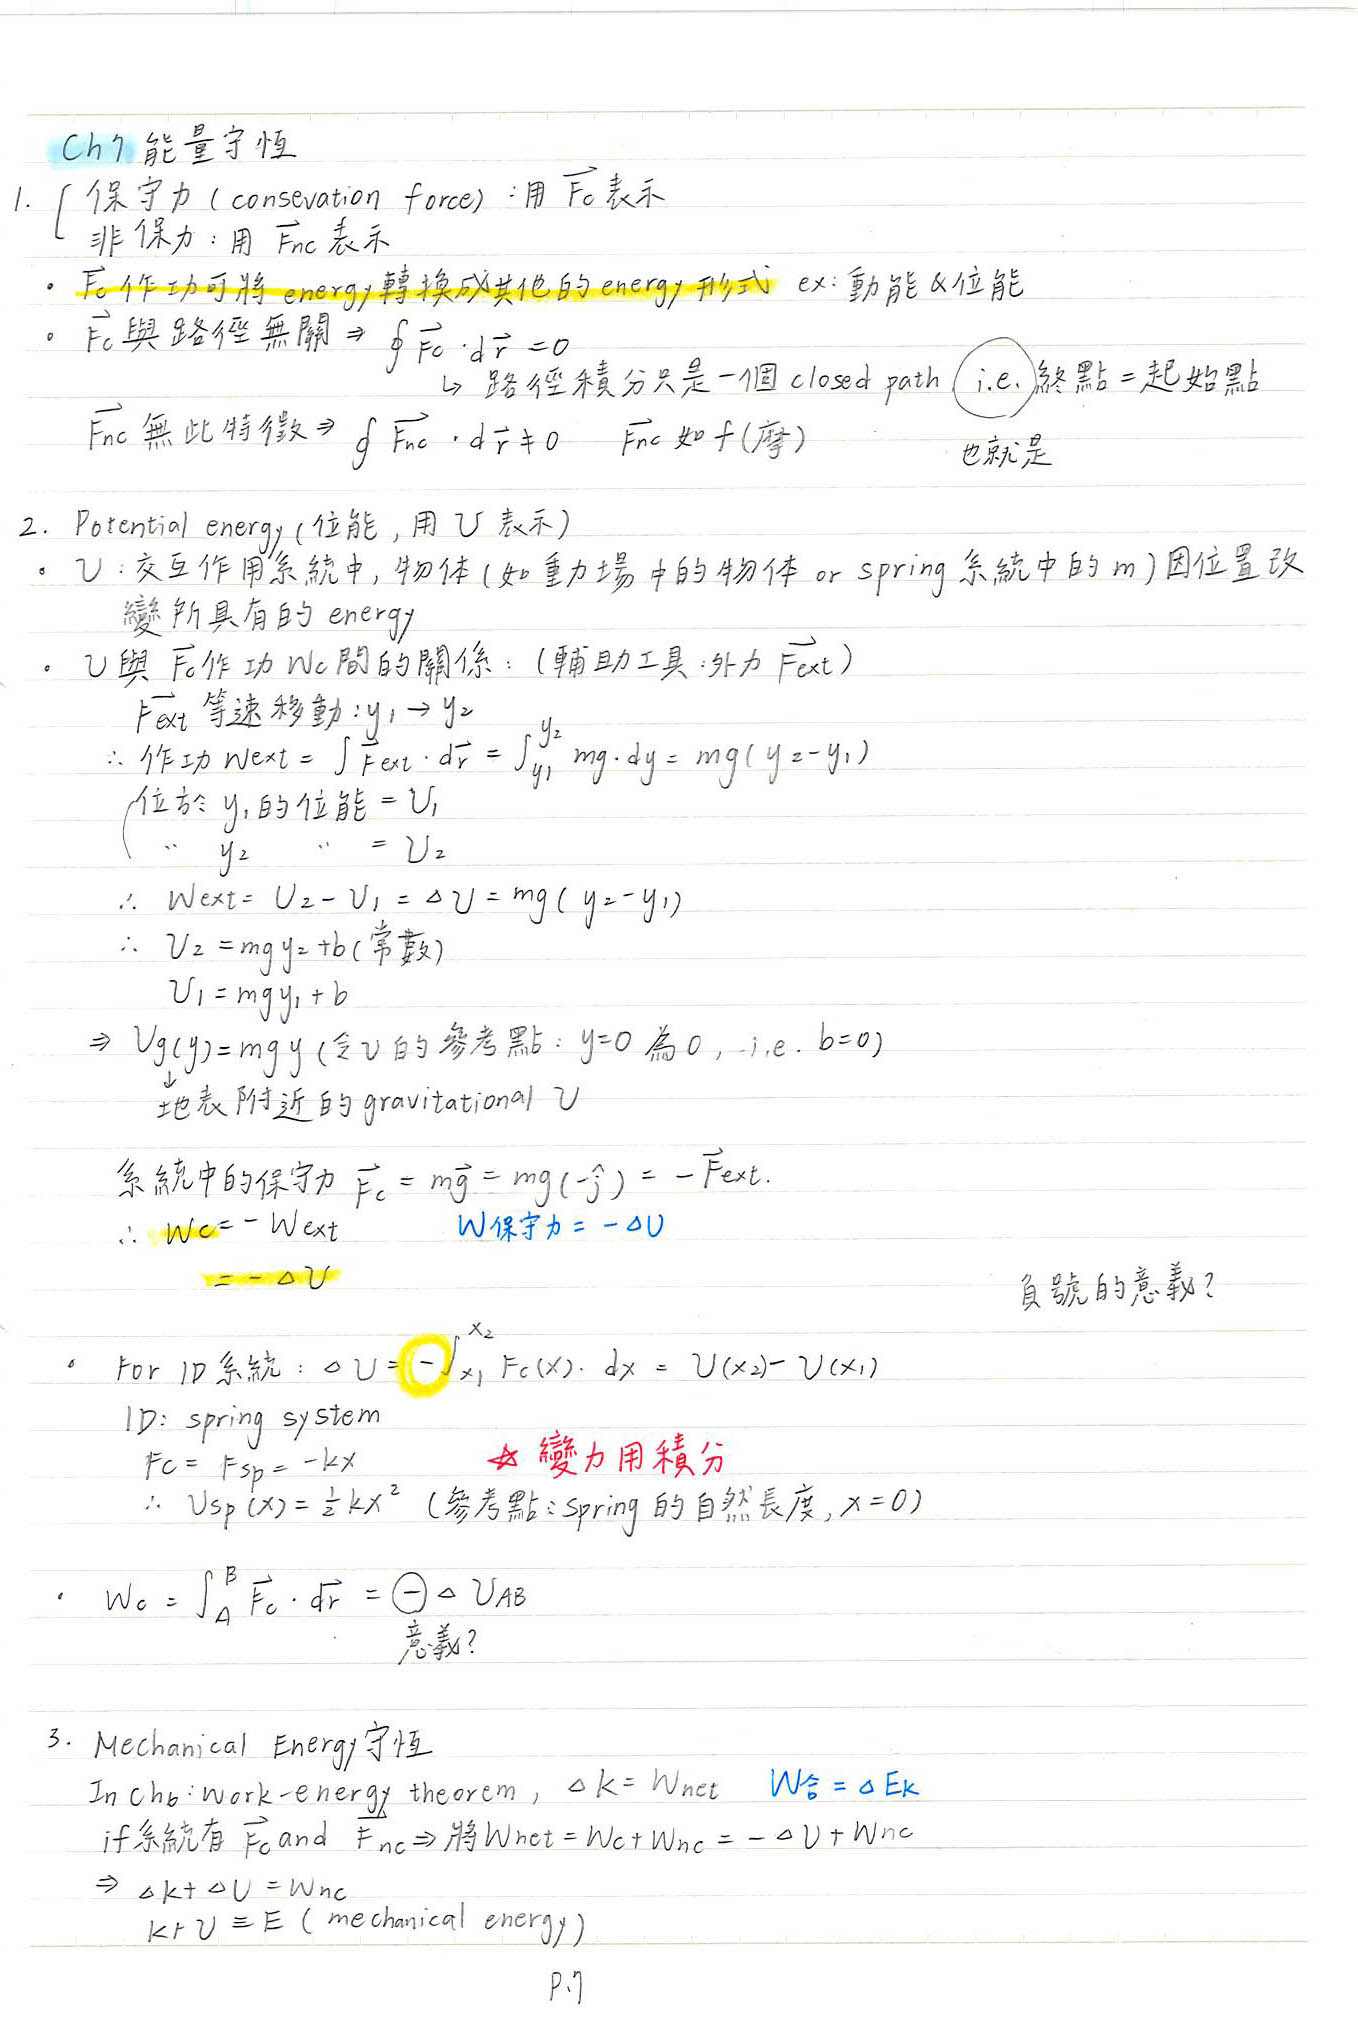 Ch7 能量守恆
1. { 保守力 (consevation force) : 用 F⃗c 表示
非保力 : 用 F⃗nc 表示
• F⃗c 作功可將 energy 轉換成其他的 energy 形式 ex: 動能 & 位能
• F⃗c 與路徑無關 ⇒ ∮ F⃗c · dr⃗ = 0
↳ 路徑積分只是一個 closed path, i.e. 終點 = 起始點
F⃗nc 無此特徵 ⇒ ∮ F⃗nc · dr⃗ ≠ 0 F⃗nc 如 f (摩)
也就是
2. Potential energy (位能, 用 U 表示)
• U : 交互作用系統中, 物体 (如重力場中的物体 or spring 系統中的 m) 因位置改
變所具有的 energy
• U 與 F⃗c 作功 Wc 間的關係 : (輔助工具 : 外力 F⃗ext)
F⃗ext 等速移動 : y₁ → y₂
∴ 作功 Wext = ∫ F⃗ext · dr⃗ = ∫_{y₁}^{y₂} mg · dy = mg (y₂ - y₁)
位於 y₁ 的位能 = U₁
〃 y₂ 〃 = U₂
∴ Wext = U₂ - U₁ = △U = mg (y₂ - y₁)
∴ U₂ = mgy₂ + b (常數)
U₁ = mgy₁ + b
⇒ Ug(y) = mgy (令 U 的參考點 : y=0 為 0, i.e. b=0)
↓
地表附近的 gravitational U
系統中的保守力 F⃗c = mg⃗ = mg (-ĵ) = - F⃗ext.
∴ Wc = - Wext W保守力 = - △U
= - △U
負號的意義?
• For 1D 系統 : △U = - ∫_{x₁}^{x₂} Fc(x) · dx = U(x₂) - U(x₁)
1D: spring system
Fc = Fsp = -kx ☆ 變力用積分
∴ Usp (x) = ½ kx² (參考點 : spring 的自然長度, x=0)
• Wc = ∫_A^B F⃗c · dr⃗ = - △U_AB
意義?
3. Mechanical Energy 守恆
In Ch6 : work-energy theorem, △k = Wnet W合 = △Ek
if 系統有 F⃗c and F⃗nc ⇒ 將 Wnet = Wc + Wnc = - △U + Wnc
⇒ △k + △U = Wnc
k + U ≡ E (mechanical energy)
P.7